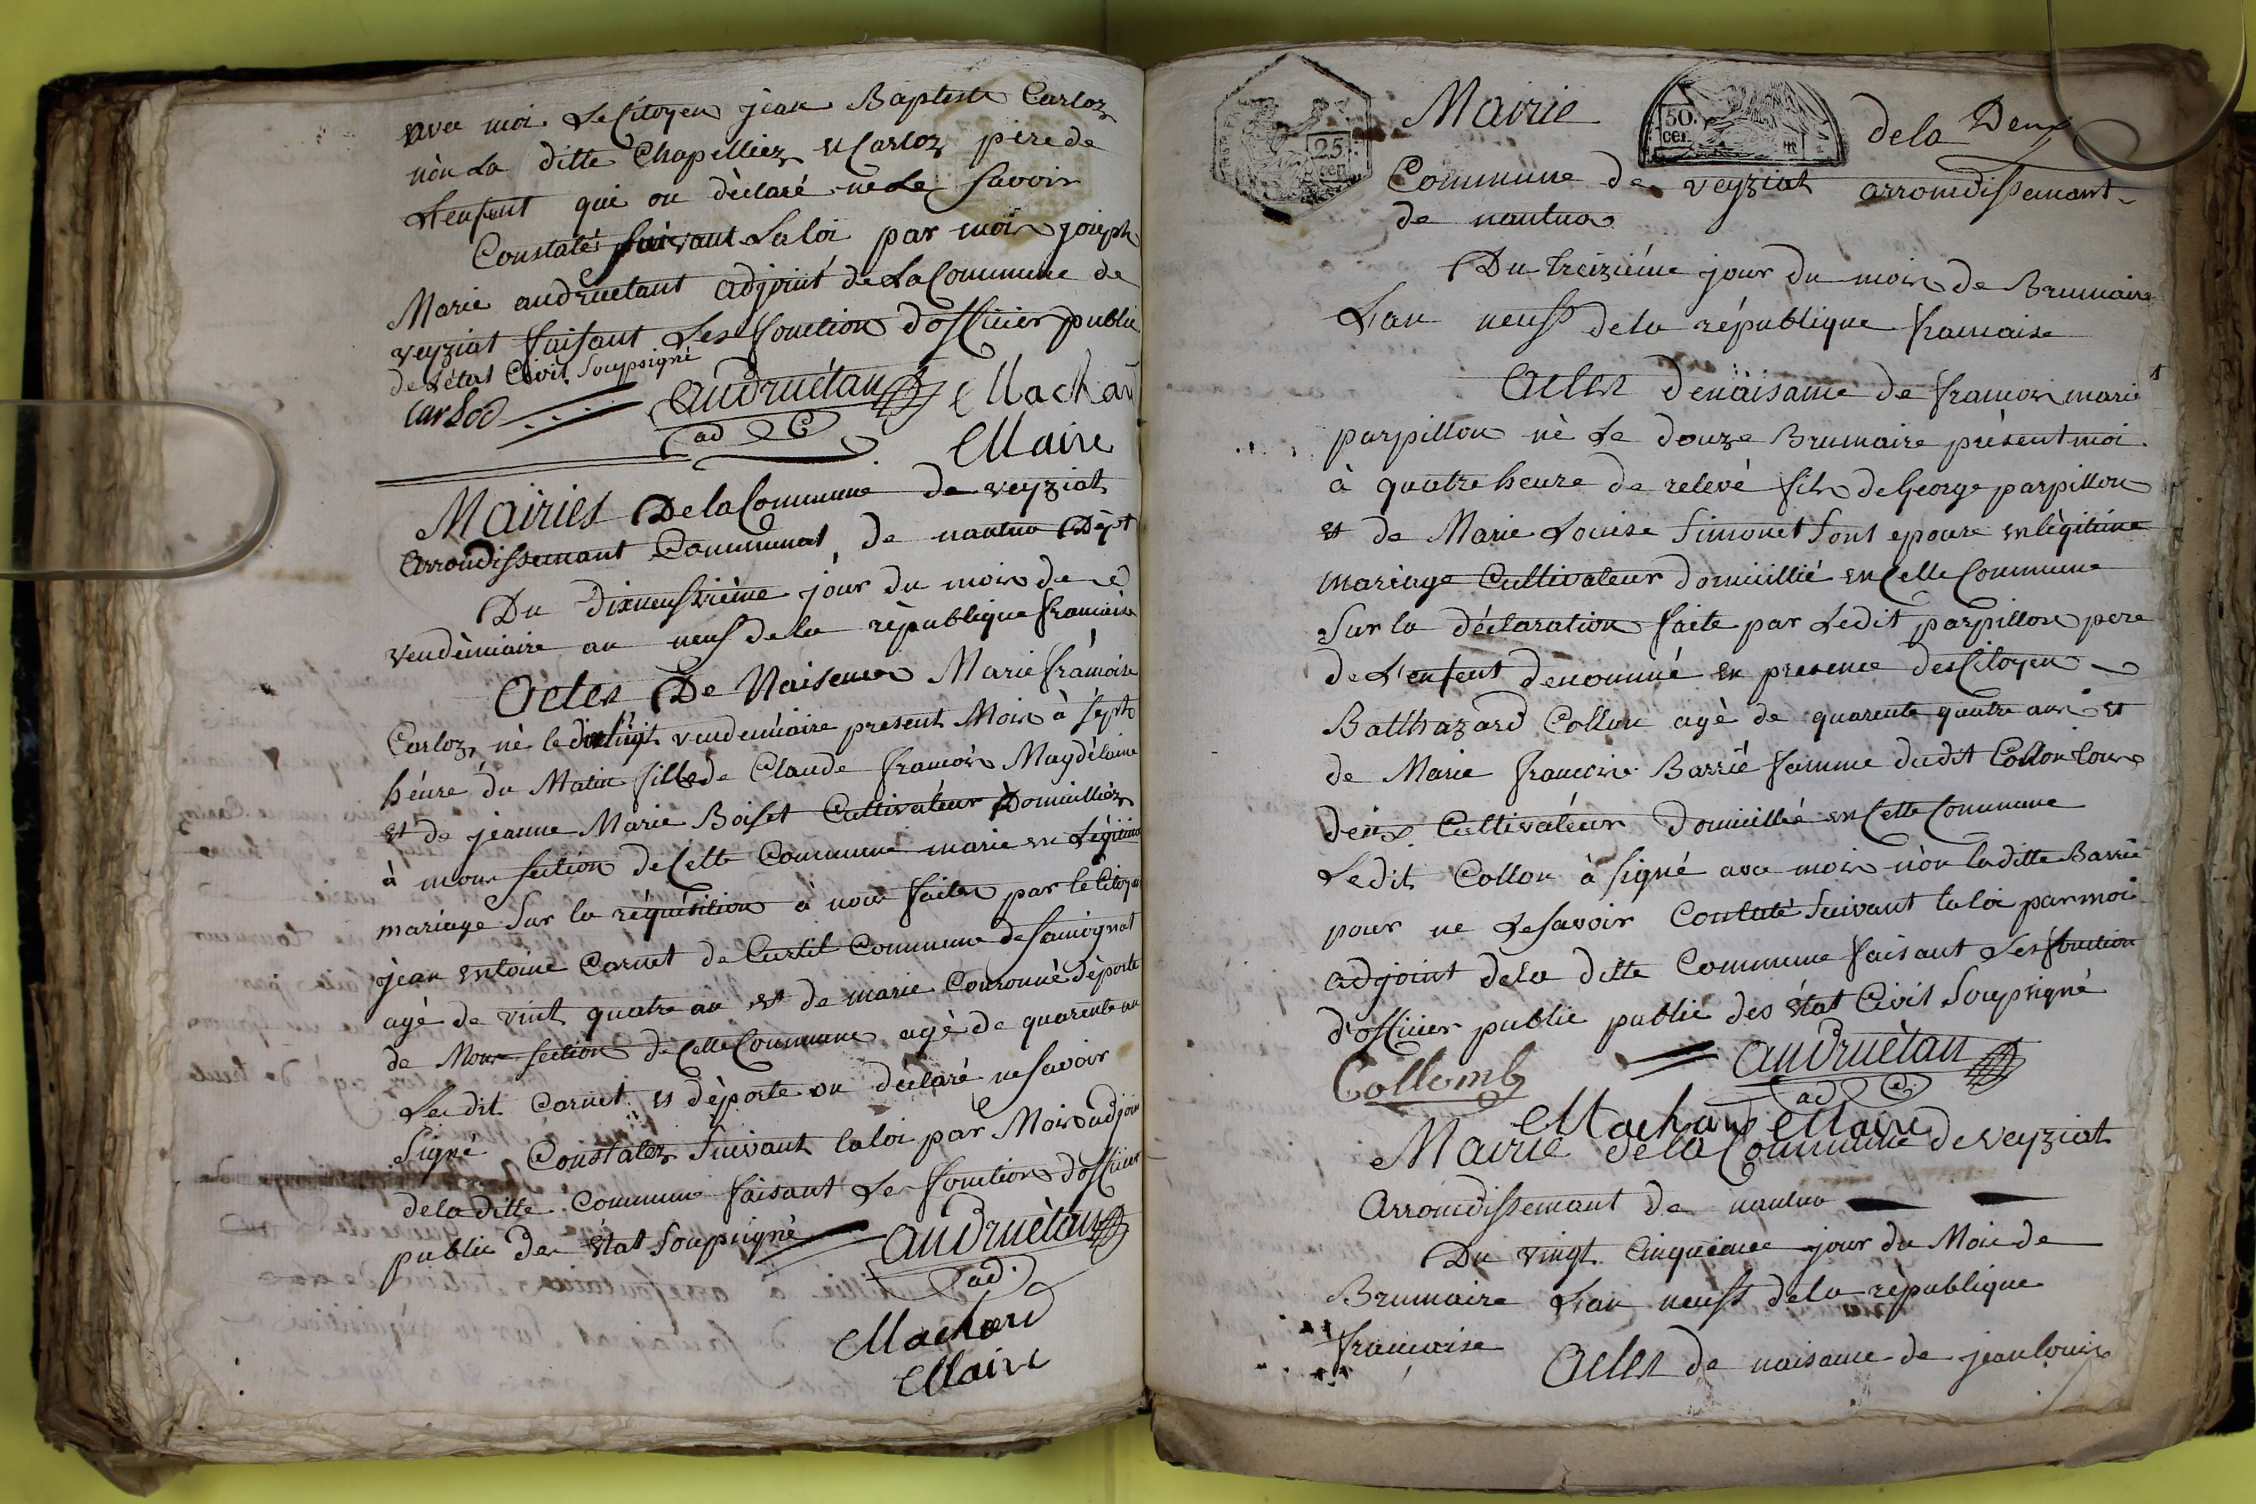 avec moi Le Citoyen jean Baptiste Carloz
nòn La ditte Chapelliez et Carloz pere de
L'enfent qui on dèclaré ne Le savoir
Constatés suivant La loi par moi joseph
Marie andruetant adjoint de La Commune de
veyziat faisant Les fonction d'officier public
de L'état Civil Soupsigné
Carloz andruétan Machard
ad
Maire
Mairies De la Commune de veyziat
arrondissemant Communal de nantua Dépt
Du dixneufvième jour du mois de
vendèmiaire an neuf de la rèpublique francaise
Actes De Naisences Marie francoise
Carloz nè le dixhuit vendemiaire present Mois à sept
héure du Matin fille de Claude francois Magdélaine
et de jeanne Marie Boiset Cultivateur Domicilliéz
à mons section de Cette Commune marie en Légitime
mariage Sur la réquisition à nous faites par le Citoyen
jean entoine Cornet de Curtil Commune de samognat
agé de vint quatre an et de marie Couronné dèporte
de Mons section de Cette Commune agè de quarente an
Le dit Cornet et dèporte on déclaré ne savoir
Signé Constatez Suivant la loi par Mois adjoin
de la ditte Commune faisant Les fonction d'officier
public de état Soupsigné andruètan
ad
Machard
Maire
25 cen
50. cer.
Mairie de la Deux
Commune de veyziat arrondissemant
de nantua
Du treiziéme jour du mois de Brumaire
L'an neuf de la république francaise
Actes de naisance de francois marie
parpillon nè Le douze Brumaire prèsent moi
à quatre heure de relevé fils de George parpillon
et de Marie Louise Simonet sont epouse en lègitime
mariage Cultivateur domicillié en Cette Commune
Sur la déclaration faite par Ledit parpillon pere
de L'enfent denommé en presence des Citoyen
Balthazard Collon agè de quarente quatre ans et
de Marie francoise Barrié famme dudit Collon tous
deux Cultivatéur domicillié en Cette Commune
Ledit Collon à signé avec mois nòn la ditte Barrié
pour ne Le savoir Constaté Suivant la loi par moi
adjoint de la ditte Commune faisant Les fonction
d'officier public public des état Civil Soupsigné
Collomb andruètan
ad
Machard Maire
Mairie de la Commune de veyziat
Arrondissemant de nantua
Du vingt Cinquieme jour du Mois de
Brumaire L'an neuf de la rèpublique
francaise Actes de naisance de jean louis